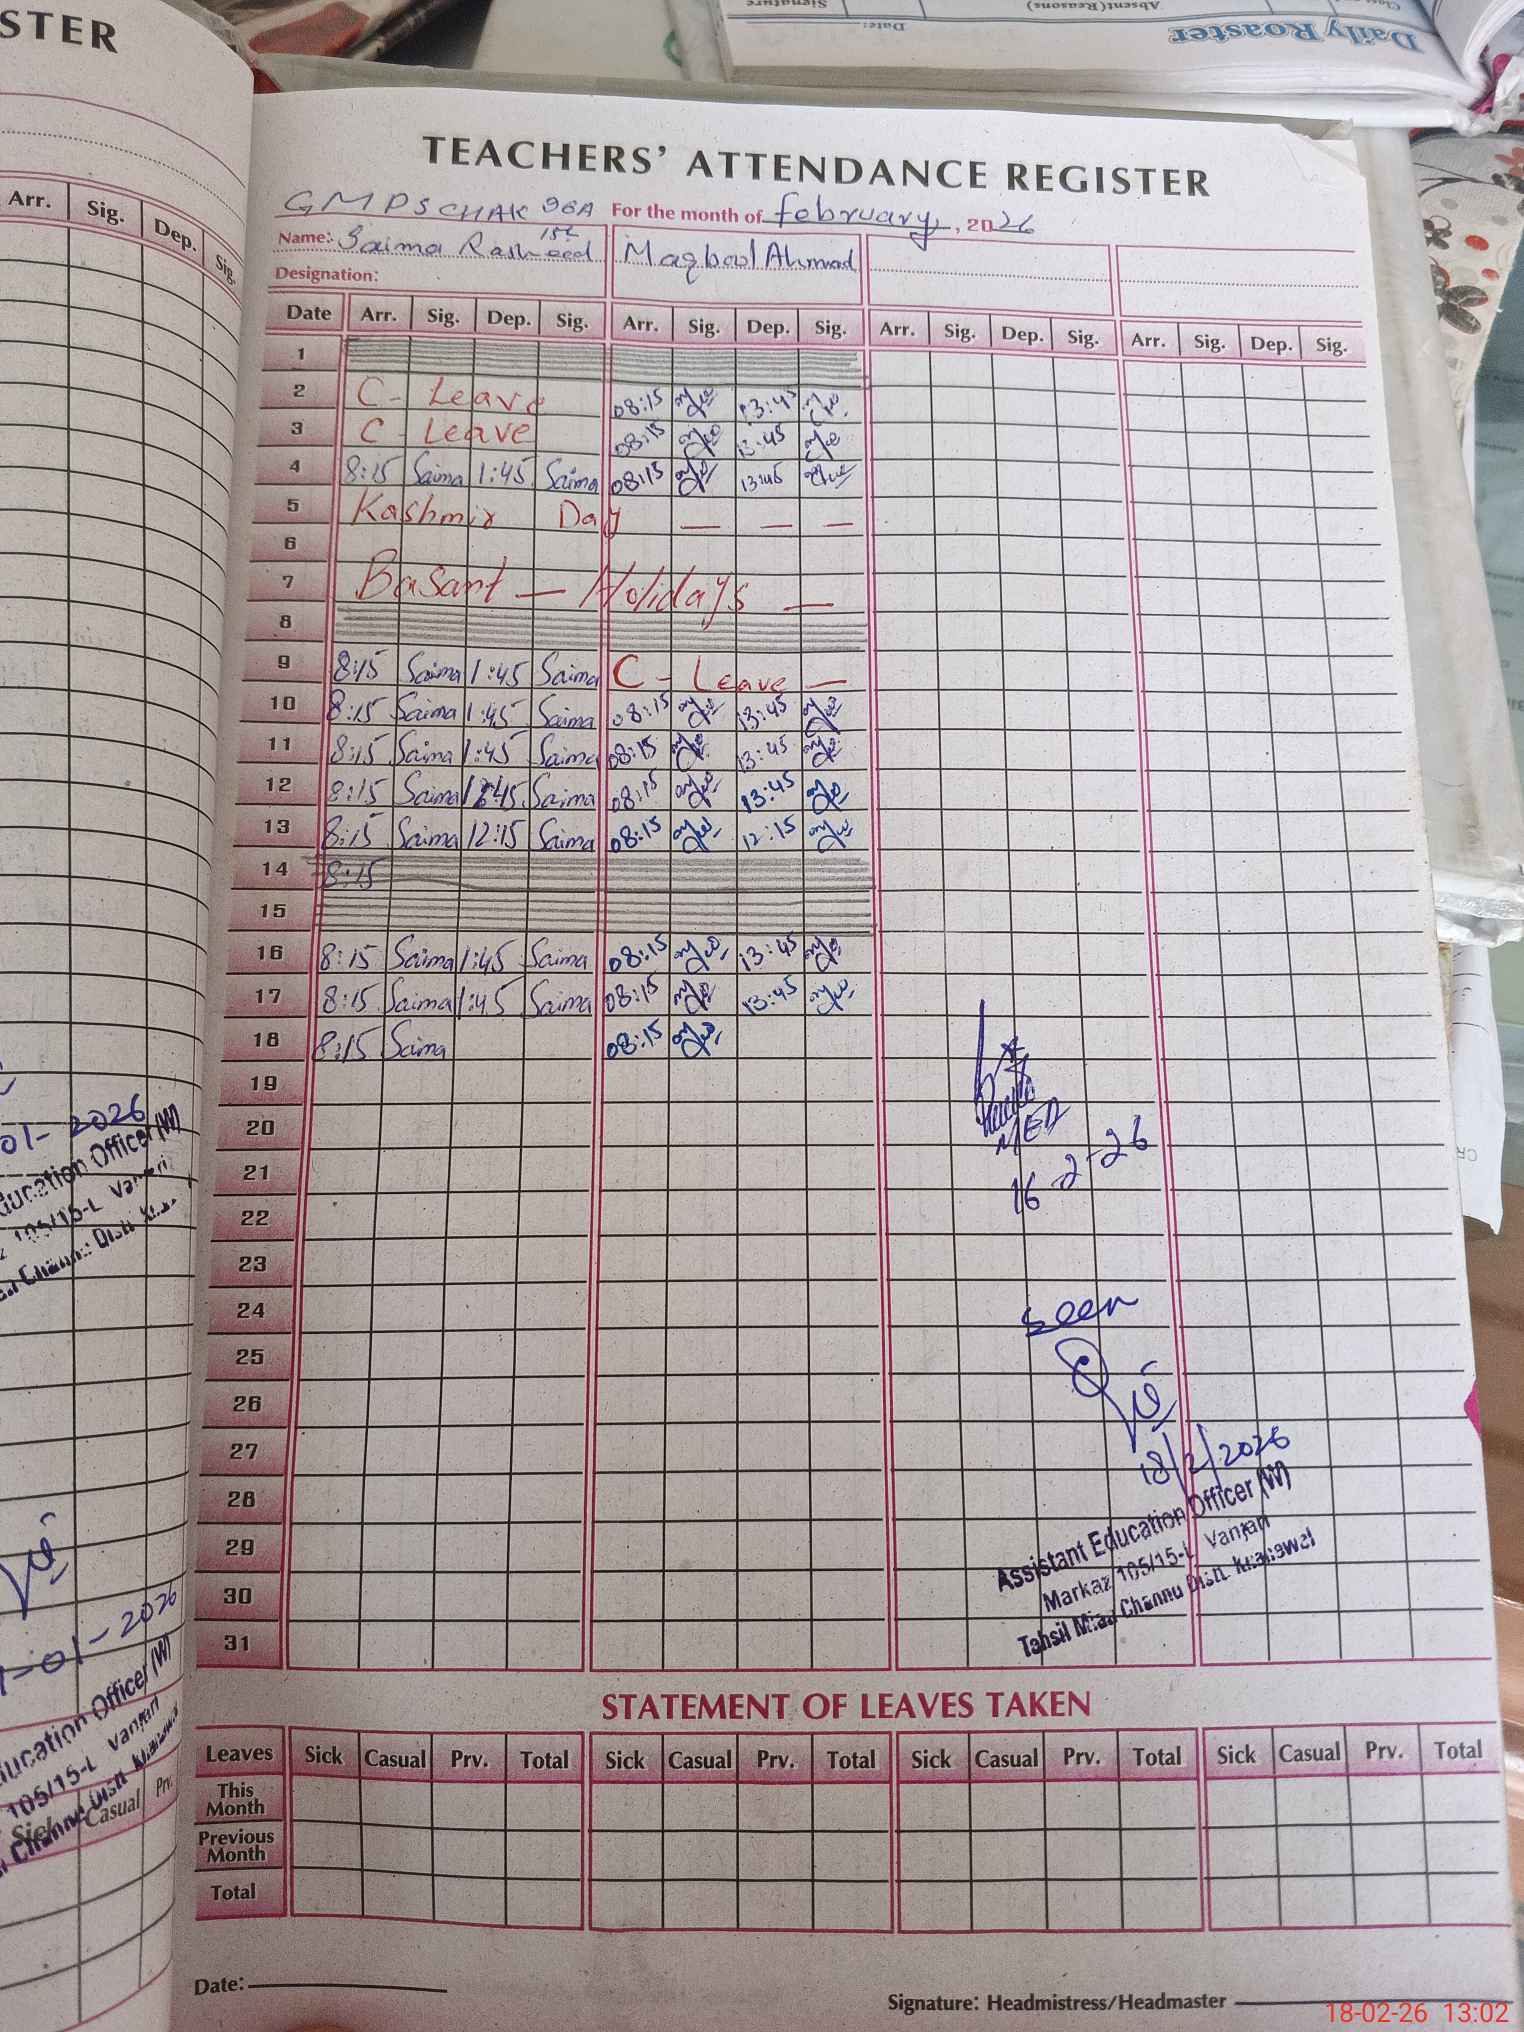 STER
Daily Roaster
Date:
Absent(Reasons)
Signature
TEACHERS' ATTENDANCE REGISTER
GMPS CHAK 96A For the month of February, 2026
15L
Name: Saima Rasheed Maqbool Ahmad
Designation:
Arr. Sig. Dep. Sig.
Date Arr. Sig. Dep. Sig. Arr. Sig. Dep. Sig. Arr. Sig. Dep. Sig. Arr. Sig. Dep. Sig.
1
2 C - Leave 08:15 13:45
3 C - Leave 08:15 13:45
4 8:15 Saima 1:45 Saima 08:15 13:45
5 Kashmir Day — — —
6
7 Basant — Holidays —
8
9 8:15 Saima 1:45 Saima C - Leave —
10 8:15 Saima 1:45 Saima 08:15 13:45
11 8:15 Saima 1:45 Saima 08:15 13:45
12 8:15 Saima 1:45 Saima 08:15 13:45
13 8:15 Saima 12:15 Saima 08:15 12:15
14 8:15
15
16 8:15 Saima 1:45 Saima 08:15 13:45
17 8:15 Saima 1:45 Saima 08:15 13:45
18 8:15 Saima 08:15
19
20
21
22
23
24
25
26
27
28
29
30
31
MEA
16-2-26
seen
18/2/2026
Assistant Education Officer (W)
Markaz 105/15-L Vanjari
Tahsil Mian Channu Distt. Khanewal
01-2026
Education Officer (W)
105/15-L
Channu Distt.
-01-2026
Education Officer (W)
105/15-L Vanjari
Channu Distt.
Sick Casual Prv.
STATEMENT OF LEAVES TAKEN
Leaves Sick Casual Prv. Total Sick Casual Prv. Total Sick Casual Prv. Total Sick Casual Prv. Total
This Month
Previous Month
Total
Date:
Signature: Headmistress/Headmaster
18-02-26 13:02